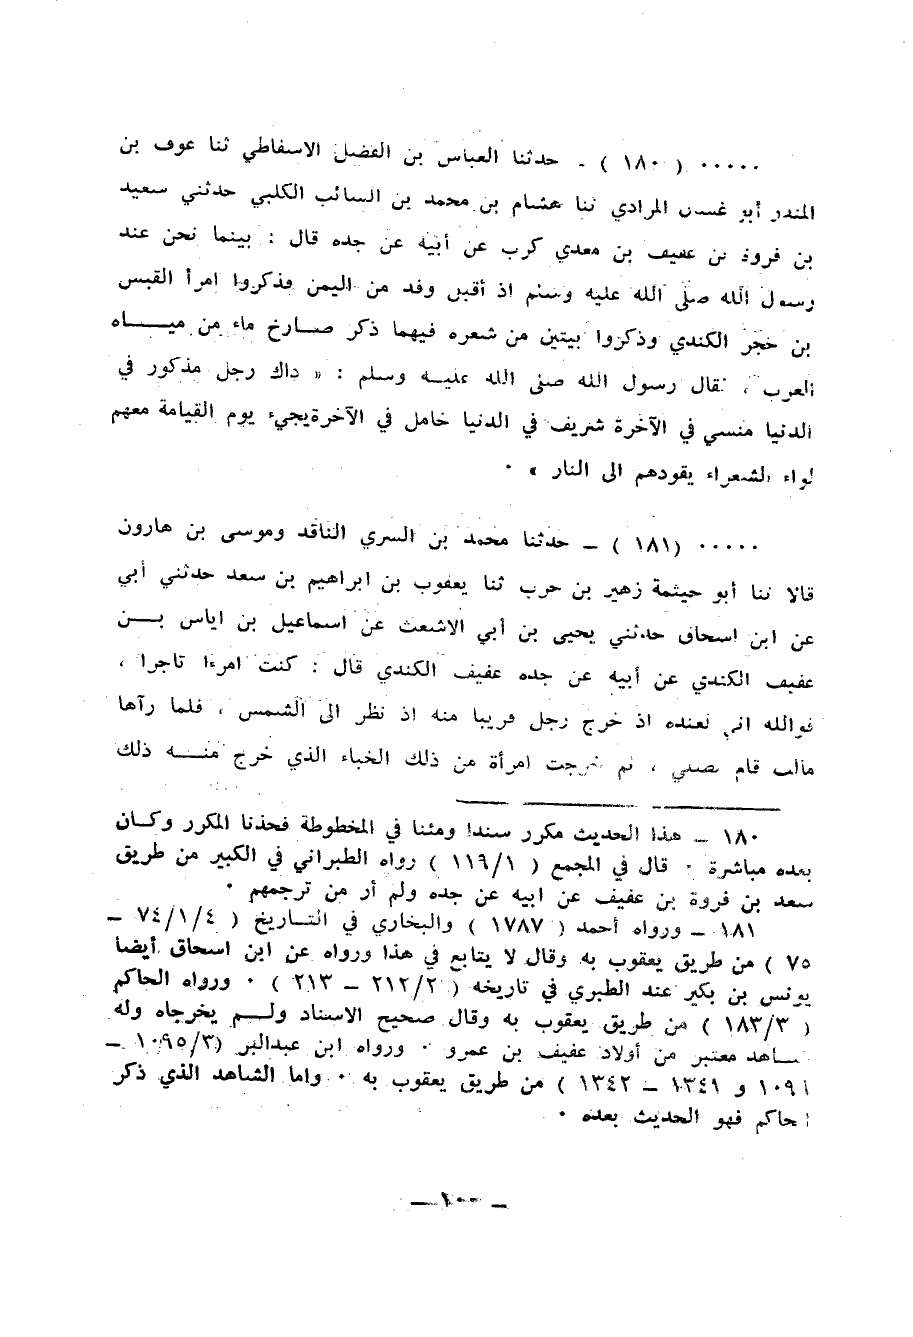 ٠٠٠٠٠ ( ١٨٠ ) ـ حدثنا العباس بن الفضل الاسفاطي ثنا عوف بن
المنذر أبو غسان المرادي ثنا هشام بن محمد بن السائب الكلبي حدثني سعيد
بن فروة بن عفيف بن معدي كرب عن أبيه عن جده قال : بينما نحن عند
رسول الله صلى الله عليه وسلم اذ أقبل وفد من اليمن فذكروا امرأ القيس
بن حجر الكندي وذكروا بيتين من شعره فيهما ذكر صارخ ماء من ميـــاه
العرب ، فقال رسول الله صلى الله عليه وسلم : « ذاك رجل مذكور في
الدنيا منسي في الآخرة شريف في الدنيا خامل في الآخرةيجيء يوم القيامة معهم
لواء الشعراء يقودهم الى النار » ٠
٠٠٠٠٠ (١٨١ ) ـ حدثنا محمد بن السري الناقد وموسى بن هارون
قالا ثنا أبو خيثمة زهير بن حرب ثنا يعقوب بن ابراهيم بن سعد حدثني أبي
عن ابن اسحاق حدثني يحيى بن أبي الاشعث عن اسماعيل بن اياس بـــن
عفيف الكندي عن أبيه عن جده عفيف الكندي قال : كنت امرءا تاجرا ،
فوالله اني لعنده اذ خرج رجل قريبا منه اذ نظر الى الشمس ، فلما رآها
مالت قام يصلي ، ثم خرجت امرأة من ذلك الخباء الذي خرج منـــه ذلك
١٨٠ ـ هذا الحديث مكرر سندا ومتنا في المخطوطة فحذنا المكرر وكان
بعده مباشرة ٠ قال في المجمع ( ١١٩/١ ) رواه الطبراني في الكبير من طريق
سعد بن فروة بن عفيف عن ابيه عن جده ولم أر من ترجمهم ٠
١٨١ ـ ورواه أحمد ( ١٧٨٧ ) والبخاري في التـاريخ ( ٧٤/١/٤ ـ
٧٥ ) من طريق يعقوب به وقال لا يتابع في هذا ورواه عن ابن اسحاق أيضا
يونس بن بكير عند الطبري في تاريخه ( ٢١٢/٢ ـ ٢١٣ ) ٠ ورواه الحاكم
( ١٨٣/٣ ) من طريق يعقوب به وقال صحيح الاسناد ولـــم يخرجاه وله
شاهد معتبر من أولاد عفيف بن عمرو ٠ ورواه ابن عبدالبر (١٠٩٥/٣ ـ
١٠٩٦ و ١٣٤١ ـ ١٣٤٢ ) من طريق يعقوب به ٠ واما الشاهد الذي ذكر
الحاكم فهو الحديث بعده ٠
ـ ١٠٠ ـ